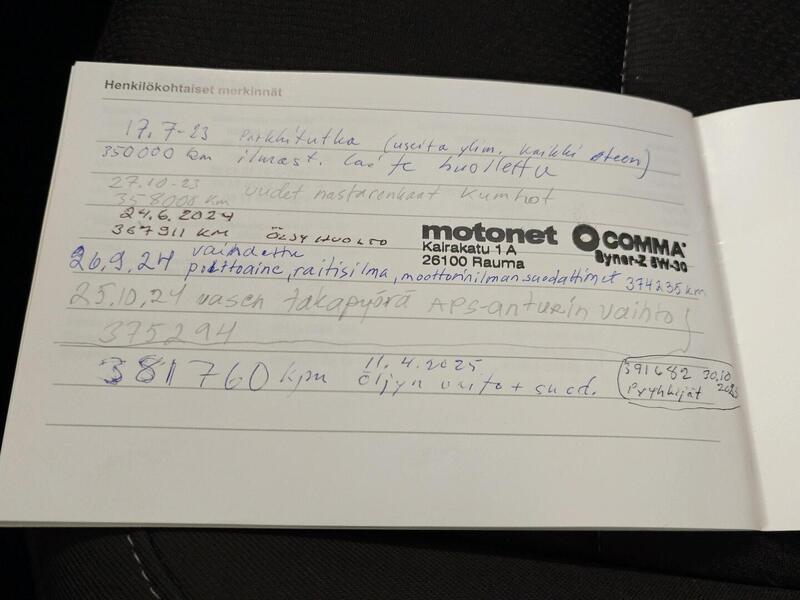 Henkilökohtaiset merkinnät
17.7-23 parkkitutka (useita ylim. kaikki
350000 km ilmast. laite huollettu
27.10-23 uudet nastarenkaat Kumhot
358000 km
24.6.2024
367911 KM ÖLJYHUOLTO
motonet
Kairakatu 1 A
26100 Rauma
COMMA
Syner-Z 5W-30
26.9.24 vaihdettu
polttoaine, raitisilma, moottorinilman suodattimet 374235 km
25.10.24 vasen takapyörä APS-anturin vaihto
375294
381760 km 11.4.2025
öljyn vaito + suod.
391682 30.10
Pyyhkijät 2025